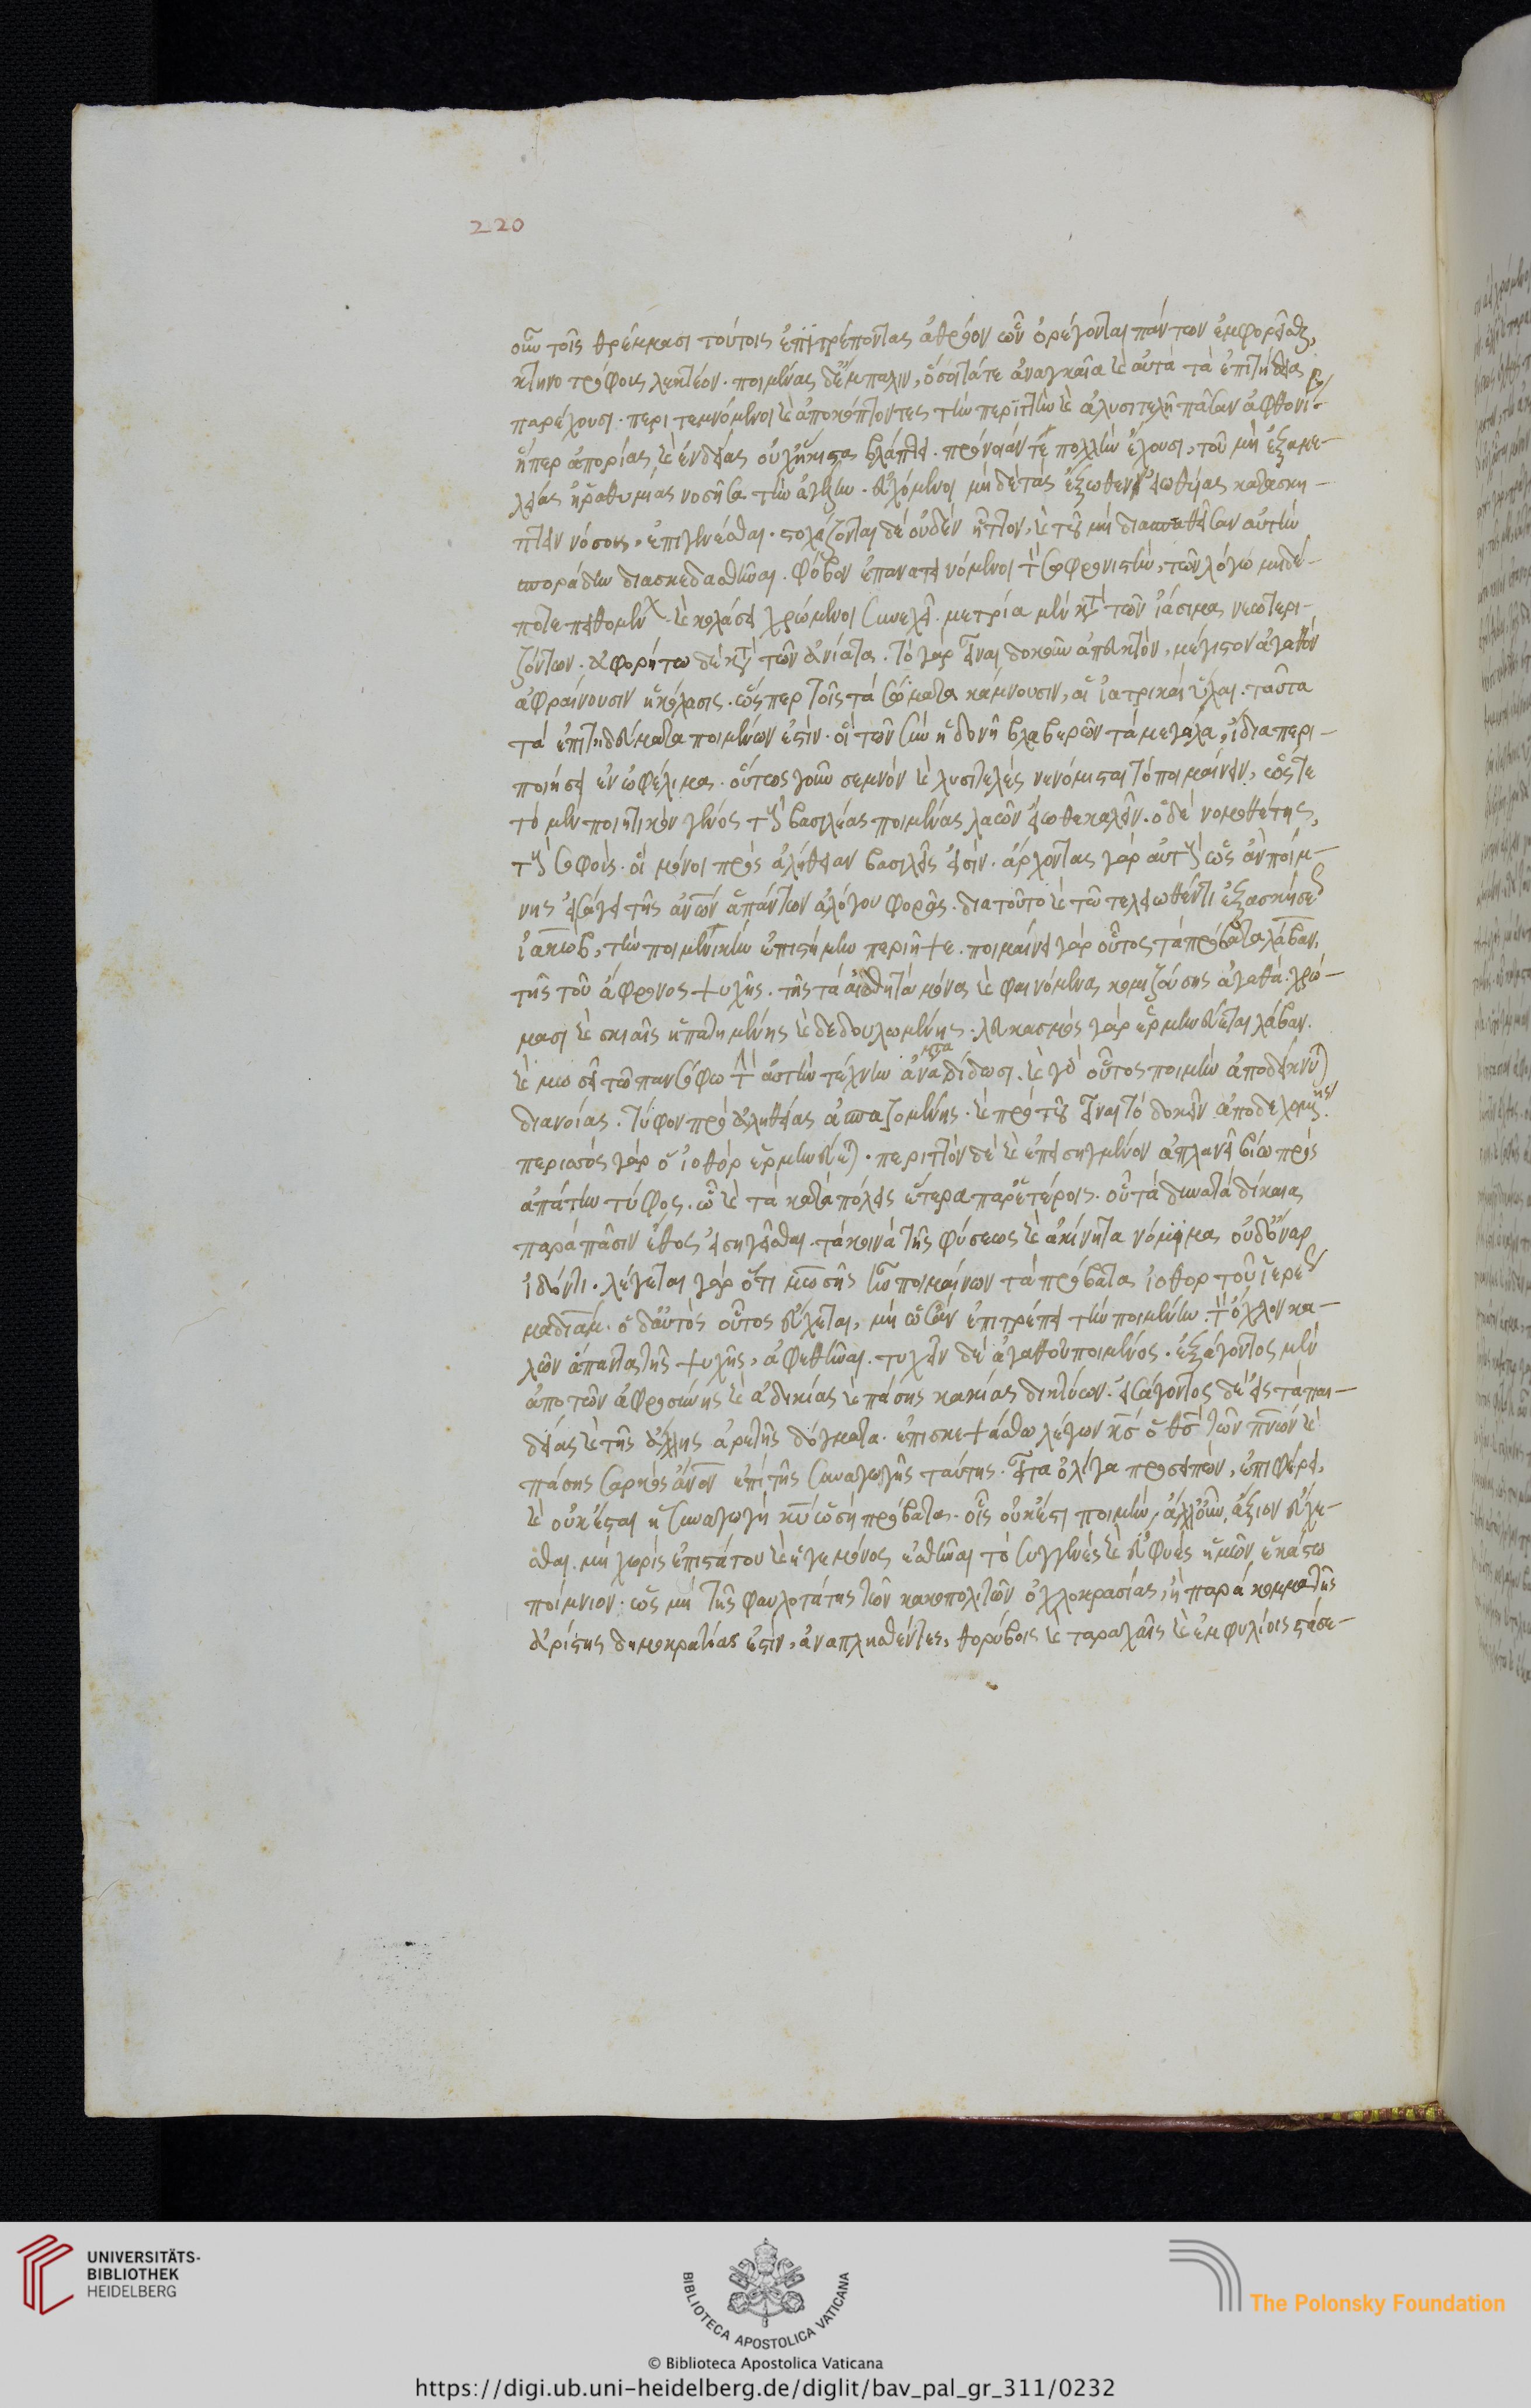 οὖν τοῖς θρέμμασι τούτοις ἐπιτρέποντας ἀθρόον ὧν ὀρέγονται πάντων ἐμφορεῖσθαι,
κτηνοτρόφους λεκτέον. ποιμένας δ' ἔμπαλιν, ὅσοι τά τε ἀναγκαῖα καὶ αὐτὰ τὰ ἐπιτήδεια
παρέχουσι. περιτεμνόμενοι καὶ ἀποκόπτοντες τὴν περιττὴν καὶ ἀλυσιτελῆ πᾶσαν ἀφθονί-
ἥπερ ἀπορίας καὶ ἐνδείας οὐχ ἥκιστα βλάπτει. πρόνοιάν τε πολλὴν ἔχουσι, τοῦ μὴ ἐξ ἀμε-
λείας ἢ ῥαθυμίας νοσῆσαι τὴν ἀγέλην. εὐχόμενοι μηδὲ τὰς ἔξωθεν εἰωθυίας κατασκή-
πτειν νόσους, ἐπιγενέσθαι. στοχάζονται δὲ οὐδὲν ἧττον, καὶ τοῦ μὴ διασπασθεῖσαν αὐτὴν
σποράδην διασκεδασθῆναι. φόβον ἐπανατεινόμενοι τὸν σωφρονιστὴν, τῶν λόγω μηδέ-
ποτε πειθομένων. καὶ κολάσει χρώμενοι συνεχεῖ. μετρία μὲν κατὰ τῶν ἰάσιμα νεωτερι-
ζόντων. ἀφορήτω δὲ κατὰ τῶν ἀνίατα. τὸ γὰρ εἶναι δοκοῦν ἀπευκτόν, μέγιστον ἀγαθὸν
ἀφραίνουσιν ἡ κόλασις. ὥσπερ τοῖς τὰ σώματα κάμνουσιν, αἱ ἰατρικαὶ ὗλαι. ταῦτα
τὰ ἐπιτηδεύματα ποιμένων ἐστίν. οἳ τῶν σὺν ἡδονῇ βλαβερῶν τὰ μετ'
ποιήσει ἐν ὠφέλιμα. οὕτως γοῦν σεμνὸν καὶ λυσιτελὲς νενόμισται τὸ ποιμαίνειν, ὥστε
τὸ μὲν ποιητικὸν γένος τοὺς βασιλέας ποιμένας λαῶν εἴωθε καλεῖν. ὁ δὲ νομοθέτης,
τοὺς σοφούς. οἳ μόνοι πρὸς ἀλήθειαν βασιλεῖς εἰσίν. ἄρχοντας γὰρ αὐτοὺς ὡς ἂν ποίμ-
νης εἰσάγει τῆς ἀνων ἁπάντων ἀλόγου φορᾶς. διατοῦτο καὶ τῶ τελειωθέντι ἐξ ἀσκήσεως
ἰακωβ, τὴν ποιμενικὴν ἐπιστήμην περιῆψε. ποιμαίνει γὰρ οὗτος τὰ πρόβατα λάβαν.
τῆς τοῦ ἄφρονος ψυχῆς. τῆς τὰ αἰσθητὰ μόνα καὶ φαινόμενα νομιζούσης ἀγαθά. χρώ-
μασι καὶ σκιαῖς ἠπατημένης καὶ δεδουλωμένης. λευκασμὸς γὰρ ἑρμηνεύεται λάβαν.
καὶ μωσεῖ τῶ πανσόφω τὴν αὐτὴν τέχνην ἀναδίδωσι. καὶ γὰρ οὗτος ποιμὴν ἀποδείκνυται
διανοίας. τύφον πρὸ ἀληθείας ἀσπαζομένης. καὶ πρὸ τοῦ εἶναι τὸ δοκεῖν ἀποδεχομένης.
περισσὸς γὰρ ὁ ἰοθὸρ ἑρμηνεύεται. περιττὸν δὲ καὶ ἐπεισηγμένον ἀπλανεῖ βίω πρὸς
ἀπάτην τύφος. ὧ καὶ τὰ κατὰ πόλεις ἕτερα παρ' ἑτέροις. οὐ τὰ δυνατὰ δίκαια
παρὰ πᾶσιν ἔθος εἰσηγεῖσθαι. τὰ κοινὰ τῆς φύσεως καὶ ἀκίνητα νόμιμα οὐδ' ὄναρ
ἰδόντι. λέγεται γὰρ ὅτι μωσῆς ἦν ποιμαίνων τὰ πρόβατα ἰοθορ τοῦ ἱερέως
μαδιάμ. ὁ δ' αὐτὸς οὗτος εὔχεται, μὴ ὡς ἂν ἐπιτρέπει τὴν ποίμνην. τὸν ὄχλον κα-
λῶν ἅπαντα τῆς ψυχῆς, ἀφεθῆναι. τυχεῖν δὲ ἀγαθοῦ ποιμένος. ἐξάγοντος μὲν
ἀπο τῶν ἀφροσύνης καὶ ἀδικίας καὶ πάσης κακίας δικτύων. εἰσάγοντος δὲ εἰς τὰ παι-
δείας καὶ τῆς ἄλλης ἀρετῆς δόγματα. ἐπισκεψάσθω λέγων κς ὁ θς τῶν πνων καὶ
πάσης σαρκὸς ἄνον ἐπὶ τῆς συναγωγῆς ταύτης. εἶτα ὀλίγα προσειπὼν, ἐπιφέρει,
καὶ οὐκ ἔσται ἡ συναγωγὴ κυ ὡσεὶ πρόβατα. οἷς οὐκ ἔστι ποιμὴν, ἀλλ' οὖν, ἄξιον εὔχε-
σθαι. μὴ χωρὶς ἐπιστάτου καὶ ἡγεμόνος ἐαθῆναι τὸ συγγενὲς καὶ εὐφυὲς ἡμῶν ἑκάστω
ποίμνιον. ὡς μὴ τῆς φαυλοτάτης τῶν κακοπολιτῶν ὀχλοκρατίας, ἢ παρά κομμα τῆς
ἀρίστης δημοκρατίας ἐστὶν, ἀναπλησθέντες, θορύβοις καὶ ταραχαῖς καὶ ἐμφυλίοις στάσε-
220
UNIVERSITÄTS-
BIBLIOTHEK
HEIDELBERG
BIBLIOTECA APOSTOLICA VATICANA
The Polonsky Foundation
© Biblioteca Apostolica Vaticana
https://digi.ub.uni-heidelberg.de/diglit/bav_pal_gr_311/0232